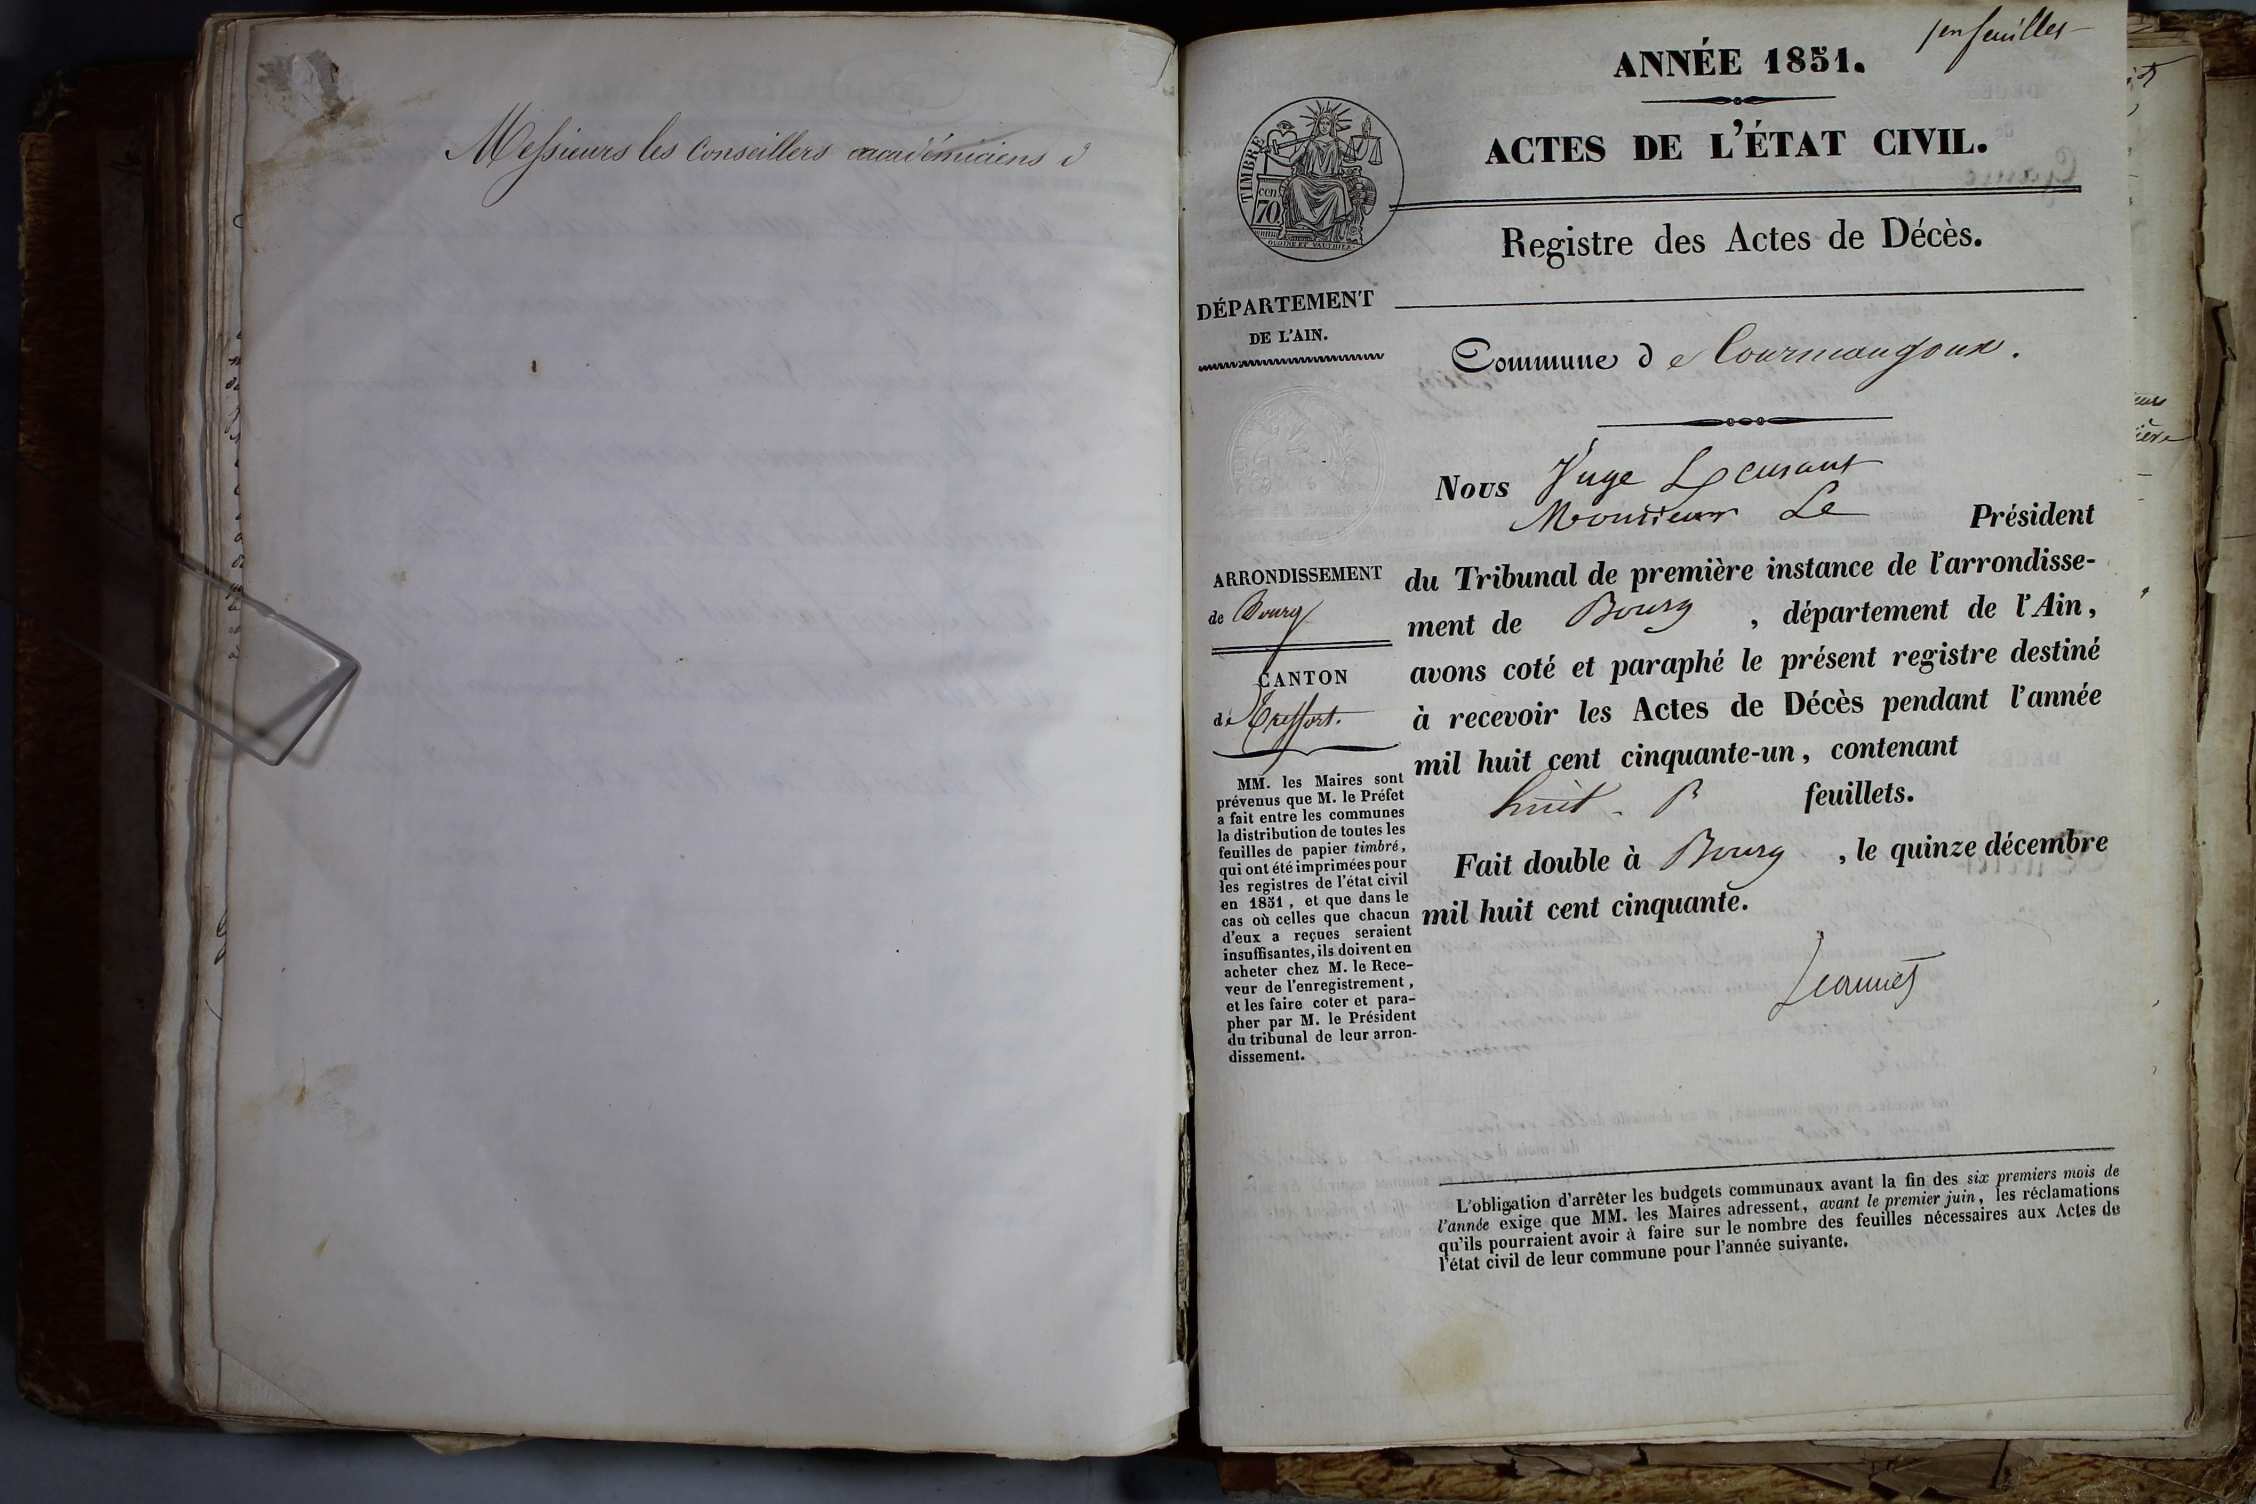 Messieurs les Conseillers académiciens d
1er feuillet
ANNÉE 1851.
ACTES DE L'ÉTAT CIVIL.
TIMBRE
70
Registre des Actes de Décès.
DÉPARTEMENT
DE L'AIN.
Commune de Courmangoux.
Nous Juge
Monsieur Le Président
du Tribunal de première instance de l'arrondisse-
ment de Bourg, département de l'Ain,
avons coté et paraphé le présent registre destiné
à recevoir les Actes de Décès pendant l'année
mil huit cent cinquante-un, contenant
huit feuillets.
Fait double à Bourg, le quinze décembre
mil huit cent cinquante.
Jeannet
ARRONDISSEMENT
de Bourg
CANTON
de Treffort.
MM. les Maires sont
prévenus que M. le Préfet
a fait entre les communes
la distribution de toutes les
feuilles de papier timbré,
qui ont été imprimées pour
les registres de l'état civil
en 1851, et que dans le
cas où celles que chacun
d'eux a reçues seraient
insuffisantes, ils doivent en
acheter chez M. le Rece-
veur de l'enregistrement,
et les faire coter et para-
pher par M. le Président
du tribunal de leur arron-
dissement.
L'obligation d'arrêter les budgets communaux avant la fin des six premiers mois de
l'année exige que MM. les Maires adressent, avant le premier juin, les réclamations
qu'ils pourraient avoir à faire sur le nombre des feuilles nécessaires aux Actes de
l'état civil de leur commune pour l'année suivante.